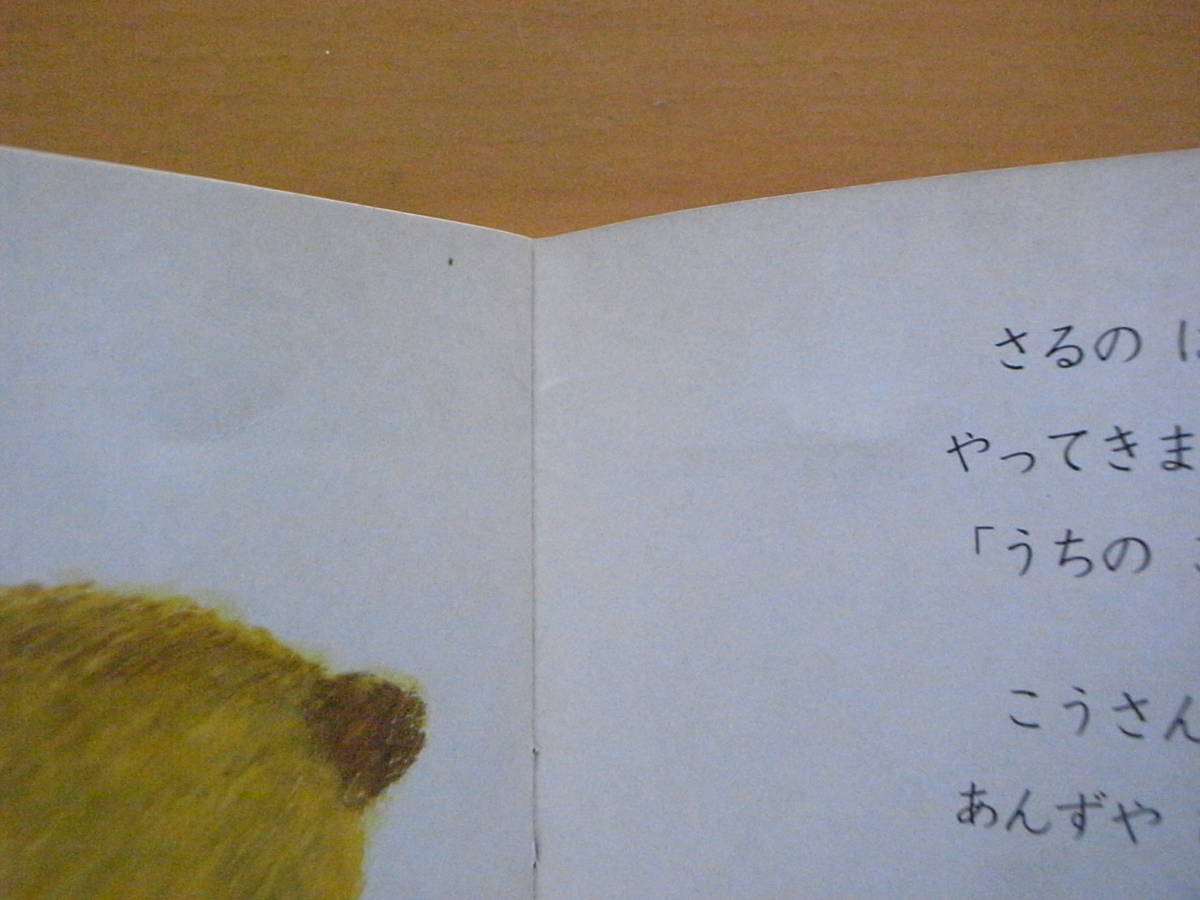 さるの
やってきま
「うちの
こうさん
あんずや